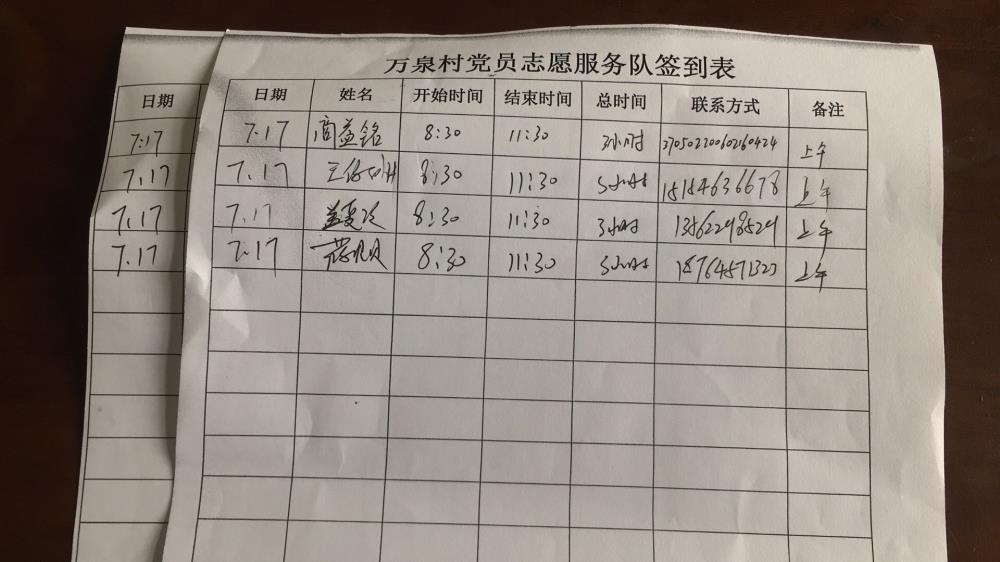 万泉村党员志愿服务队签到表
日期
日期 姓名 开始时间 结束时间 总时间 联系方式 备注
7.17
7.17 商益铭 8:30 11:30 3小时 370502200602160424 上午
7.17
7.17 8:30 11:30 3小时 18184636678 上午
7.17
7.17 8:30 11:30 3小时 13562298529 上午
7.17
7.17 8:30 11:30 3小时 18764571323 上午